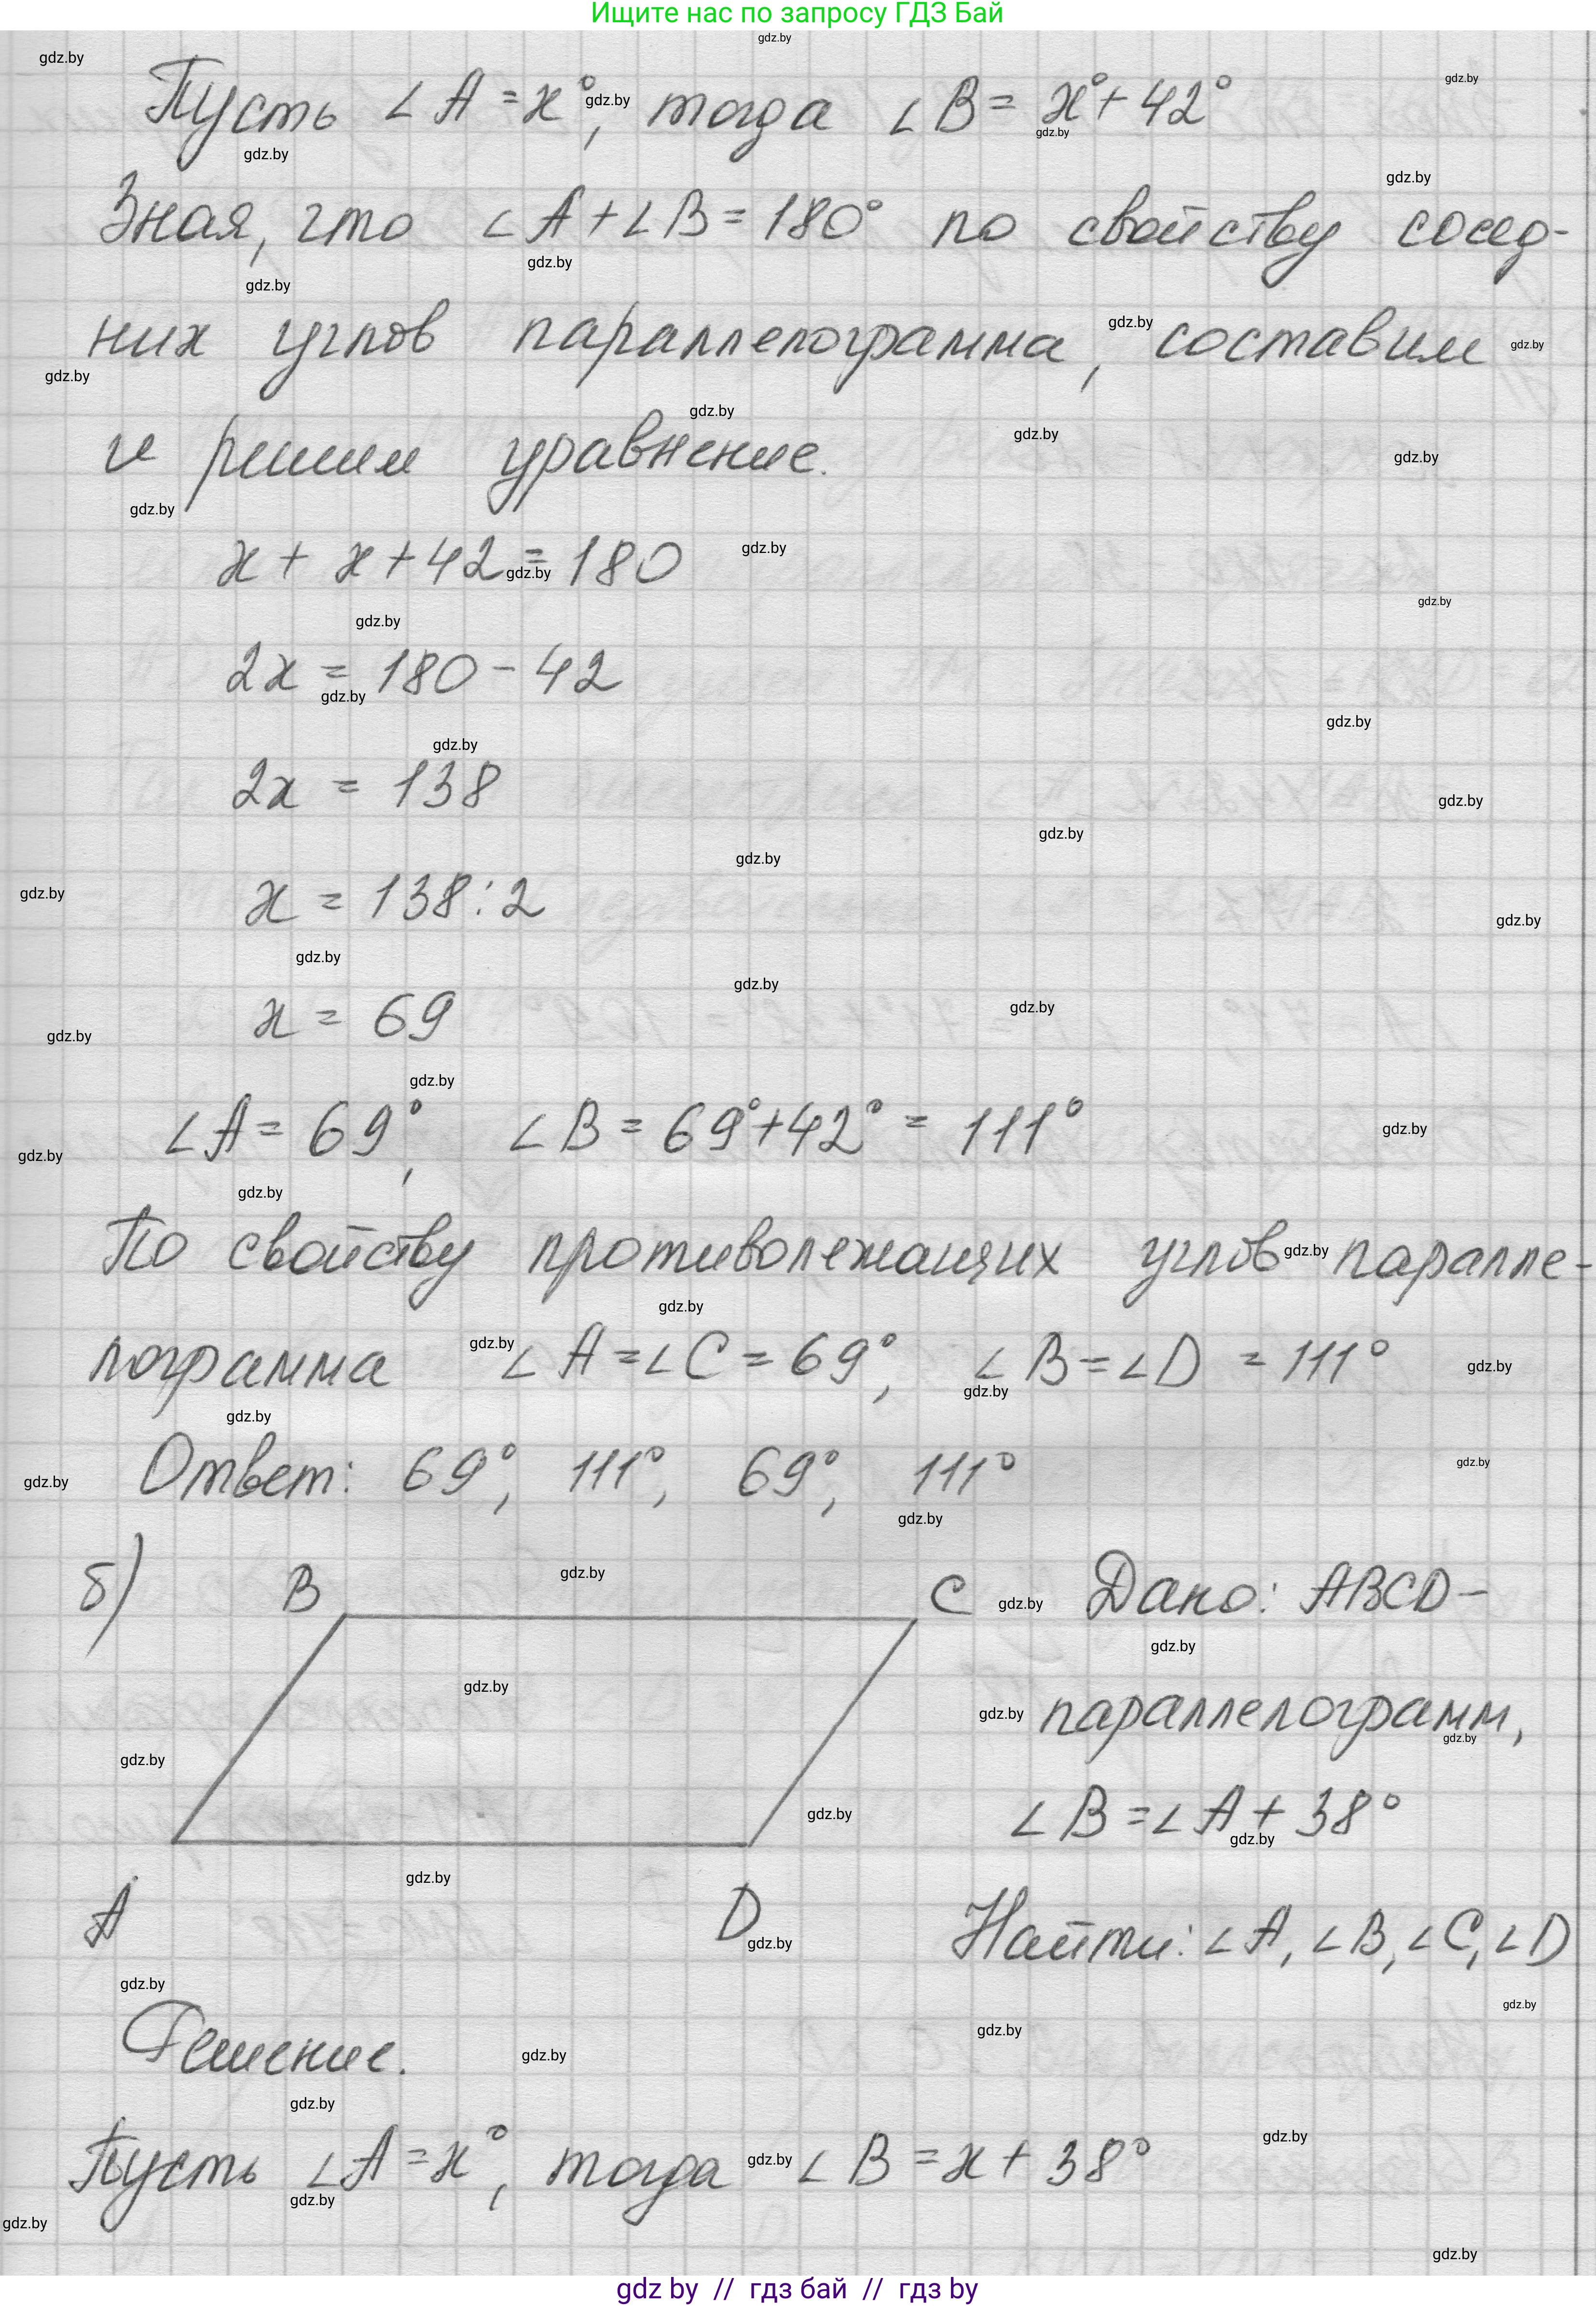 Ищите нас по запросу ГДЗ Бай
Пусть ∠A = x°, тогда ∠B = x° + 42°
Зная, что ∠A + ∠B = 180° по свойству сосед-
них углов параллелограмма, составим
и решим уравнение.
x + x + 42 = 180
2x = 180 - 42
2x = 138
x = 138 : 2
x = 69
∠A = 69°, ∠B = 69° + 42° = 111°
По свойству противолежащих углов паралле-
лограмма ∠A = ∠C = 69°, ∠B = ∠D = 111°
Ответ: 69°, 111°, 69°, 111°
б) B C Дано: ABCD –
параллелограмм,
∠B = ∠A + 38°
A D Найти: ∠A, ∠B, ∠C, ∠D
Решение.
Пусть ∠A = x°, тогда ∠B = x + 38°
gdz by // гдз бай // гдз by